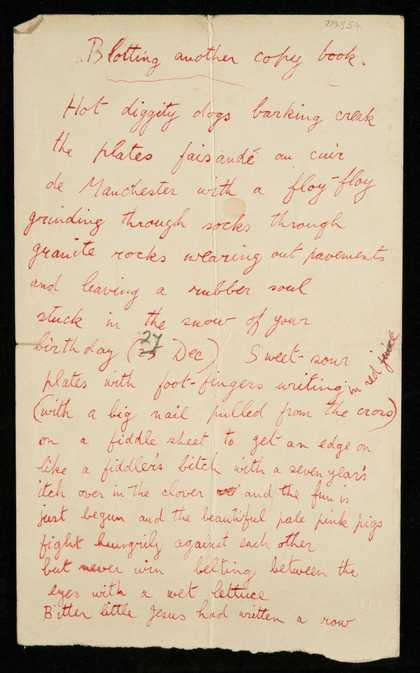 Blotting another copy book.
Hot diggity dogs barking creak
the plates faisandé au cuir
de Manchester with a floy-floy
grinding through socks through
granite rocks wearing out pavements
and leaving a rubber soul
stuck in the snow of your
birthday (27 Dec) Sweet-sour
plates with foot-fingers writing in red
(with a big nail pulled from the cross)
on a fiddle sheet to get an edge on
like a fiddler's bitch with a seven year's
itch over in the clover and the fun is
just begun and the beautiful pale pink pigs
fight hungrily against each other
but never win belting between the
eyes with a wet lettuce
Bitter little Jesus had written a row